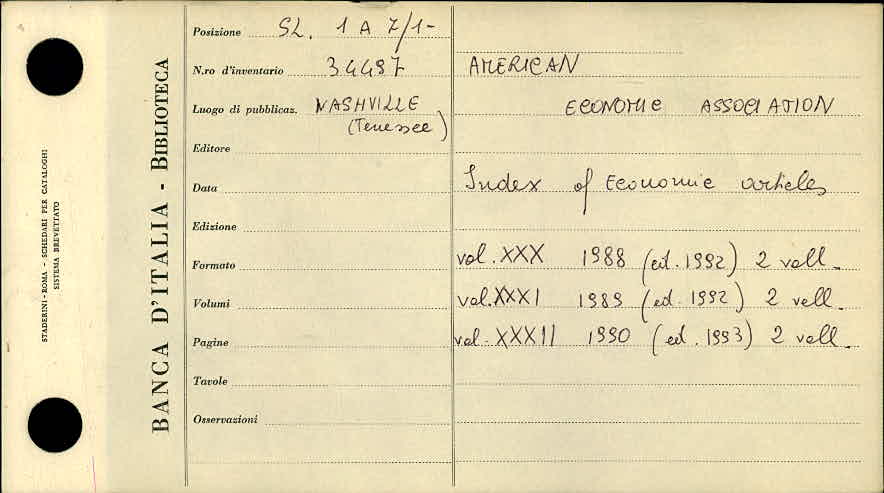 STADERINI-ROMA - SCHEDARI PER CATALOGHI
SISTEMA BREVETTATO
BANCA D'ITALIA - BIBLIOTECA
Posizione SL. 1 A 7/1-
N.ro d'inventario 34497
Luogo di pubblicaz. NASHVILLE
(Tenessee)
Editore
Data
Edizione
Formato
Volumi
Pagine
Tavole
Osservazioni
AMERICAN
ECONOMIC ASSOCIATION
Index of Economic articles
vol. XXX 1988 (ed. 1992) 2 voll.
vol. XXXI 1989 (ed. 1992) 2 voll.
vol. XXXII 1990 (ed. 1993) 2 voll.